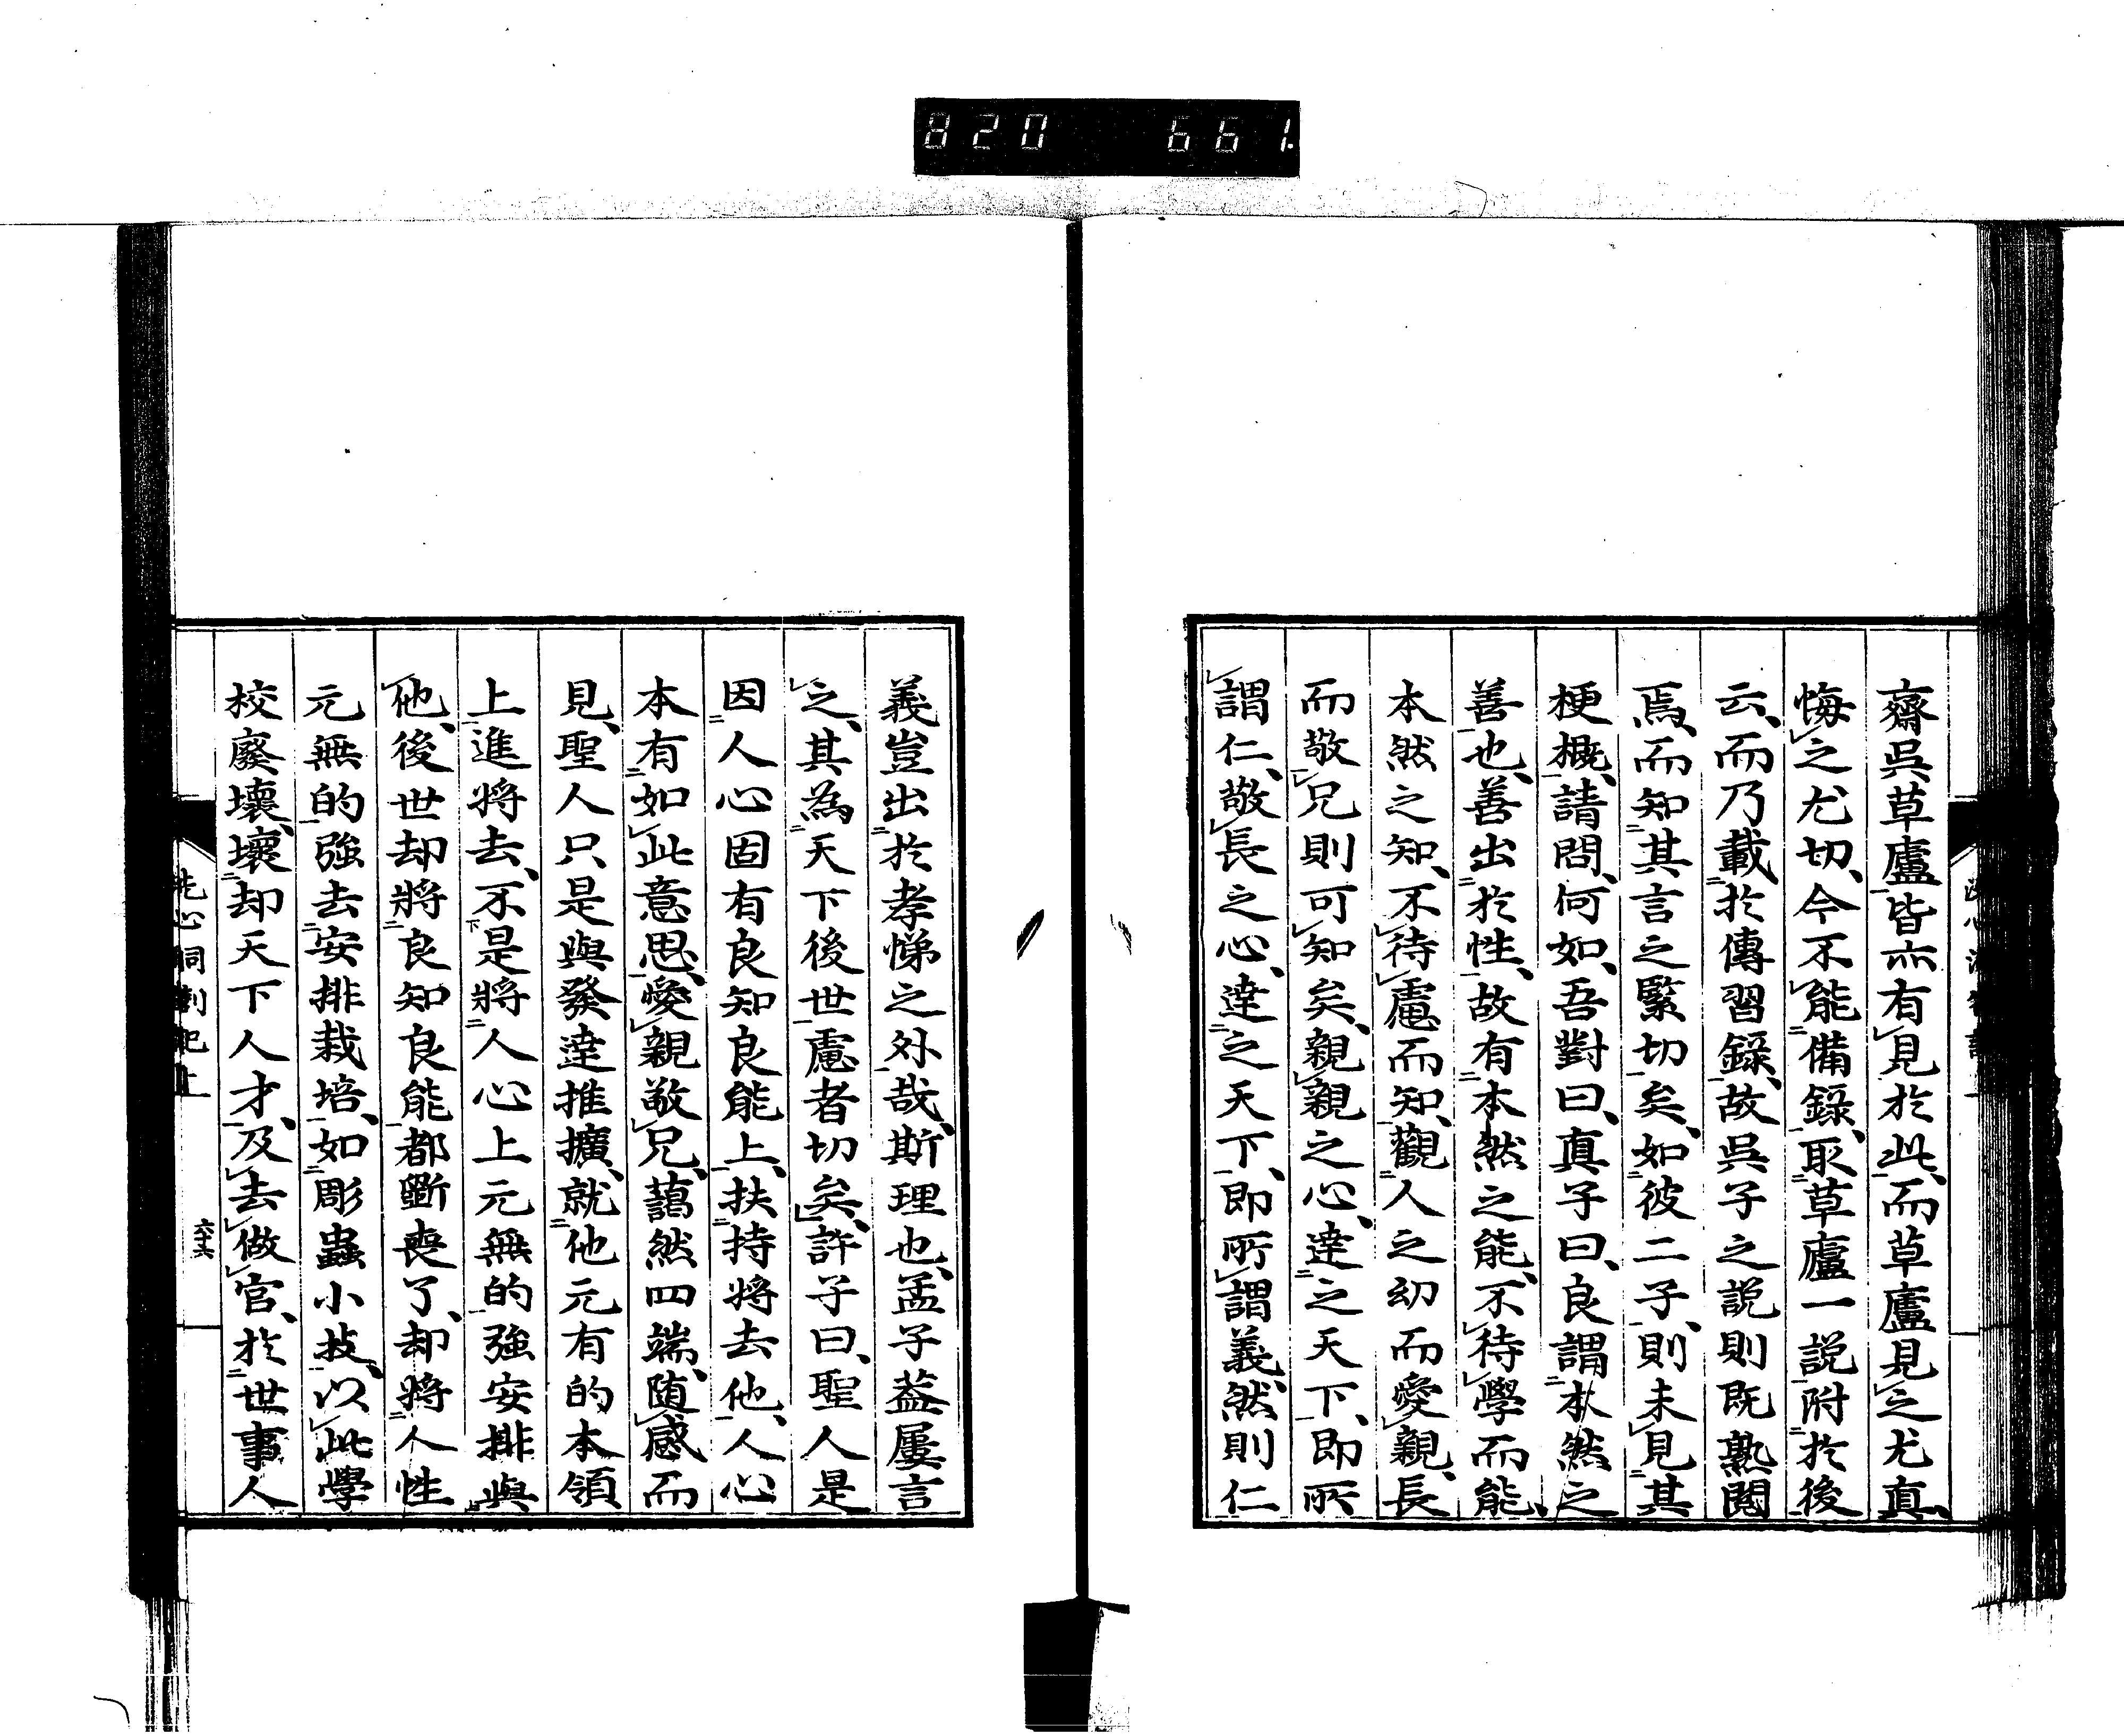 820 661.
齋吳草廬皆亦有見於此、而草廬見之尤真、
悔之尤切、今不能備錄、取草廬一說附於後
云、而乃載於傳習錄、故吳子之說則既熟閱
焉、而知其言之緊切矣、如彼二子、則未見其
梗概、請問、何如、吾對曰、真子曰、良謂本然之
善也、善出於性、故有本然之能、不待學而能、
本然之知、不待慮而知、觀人之幼而愛親、長
而敬兄則可知矣、親親之心、達之天下、即所
謂仁、敬長之心、達之天下、即所謂義、然則仁
義豈出於孝悌之外哉、斯理也、孟子蓋屢言
之、其為天下後世慮者切矣、許子曰、聖人是
因人心固有良知良能上、扶持將去他、人心
本有如此意思、愛親敬兄、藹然四端、随感而
見、聖人只是與發達推擴、就他元有的本領
上進將去、不是將人心上元無的強安排與
他、後世却將良知良能都斷喪了、却將人性
元無的強去安排栽培、如彫蟲小技、以此學
校廢壞、壞却天下人才、及去做官、於世事人
洗心洞劄記上
六十六